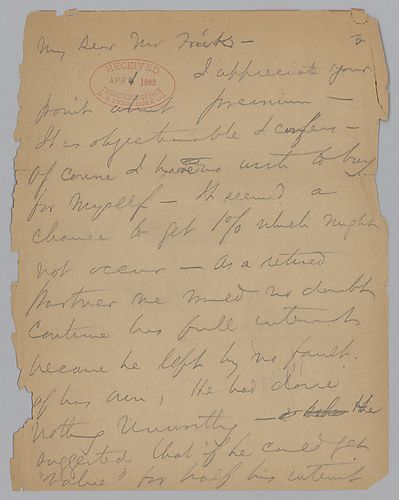 My Dear Mr Frick –
RECEIVED
APR 4 1892
PRESIDENT'S OFFICE
I appreciate your
point about premium –
It is objectionable I confess –
of course I have no wish to buy
for myself – It seemed a
chance to get 1% which might
not occur – As a retired
Partner he would no doubt
Continue his full interest
because he left by no fault
of his own, He had done
nothing unworthy – the
suggested that if he could get
"Value" for half his interest